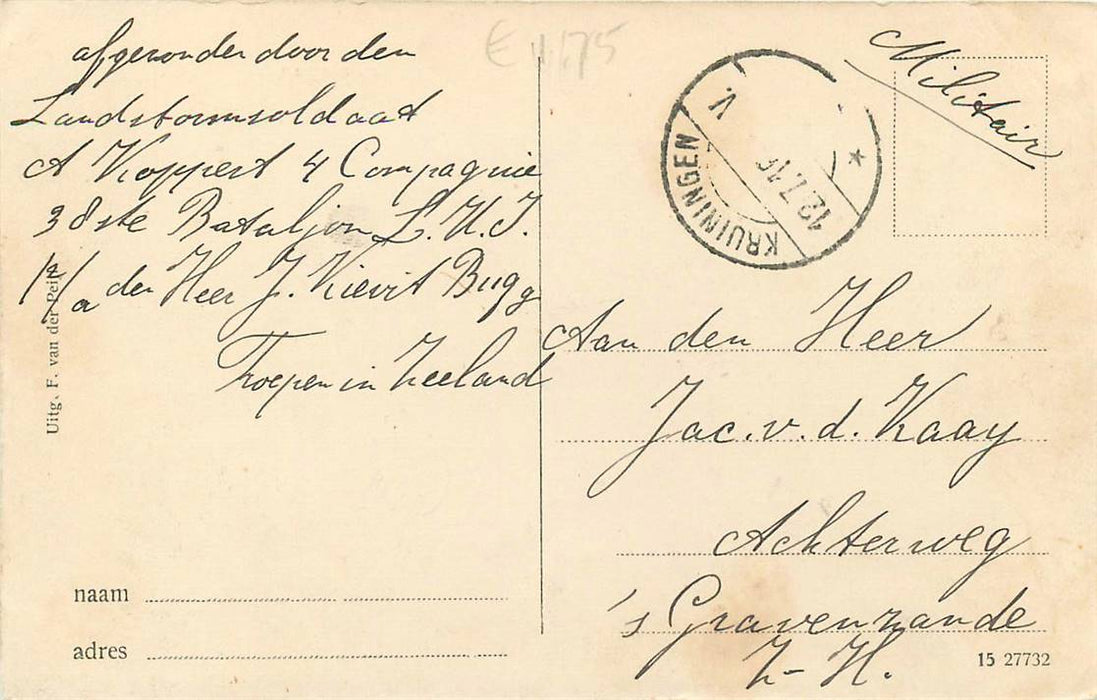 afgezonden door den
Landstormsoldaat
A Koppert 4 Compagnie
38ste Bataljon L.W.I.
p/a den Heer J. Kievit Bugg
Troepen in Zeeland
Uitg. F. van der Peijl
naam
adres
E 4,75
KRUININGEN
12.7.16
V.
*
Militair
Aan den Heer
Jac. v. d. Kaay
Achterweg
's Gravenzande
Z-H.
15 27732